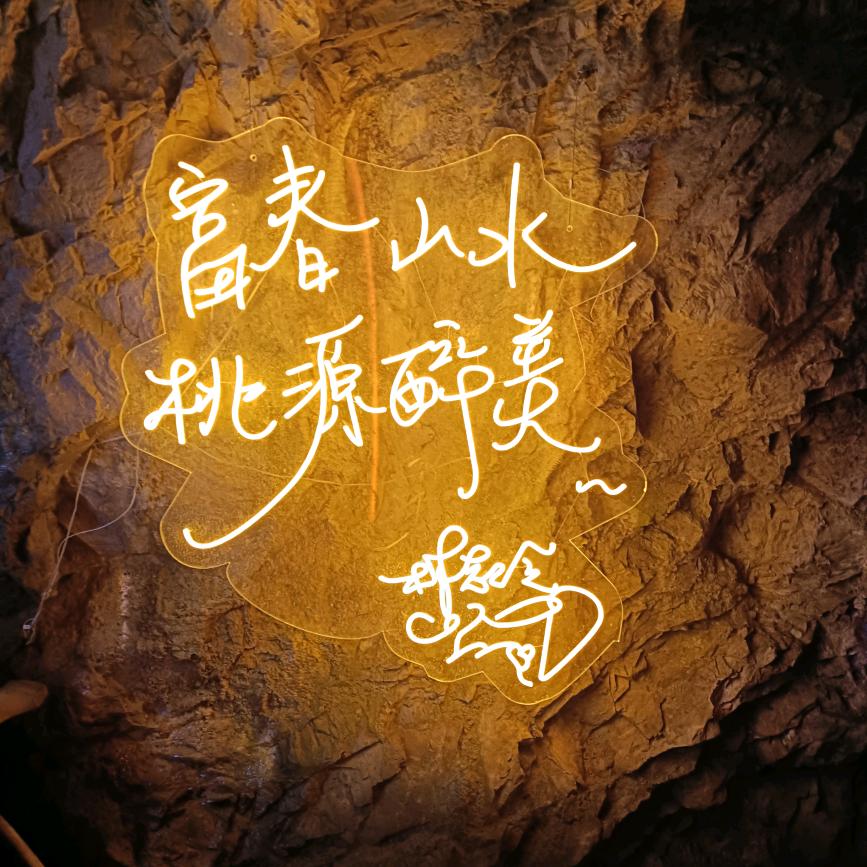 富春山水
桃源醉美~